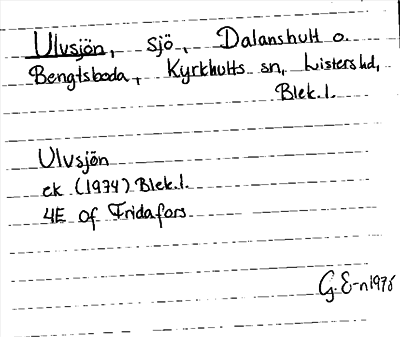 Ulvsjön, sjö, Dalanshult o.
Bengtsboda, Kyrkhults sn, Listers hd,
Blek. l.
Ulvsjön
ek (1974) Blek. l.
4E Of Fridafors
G. E-n 1976